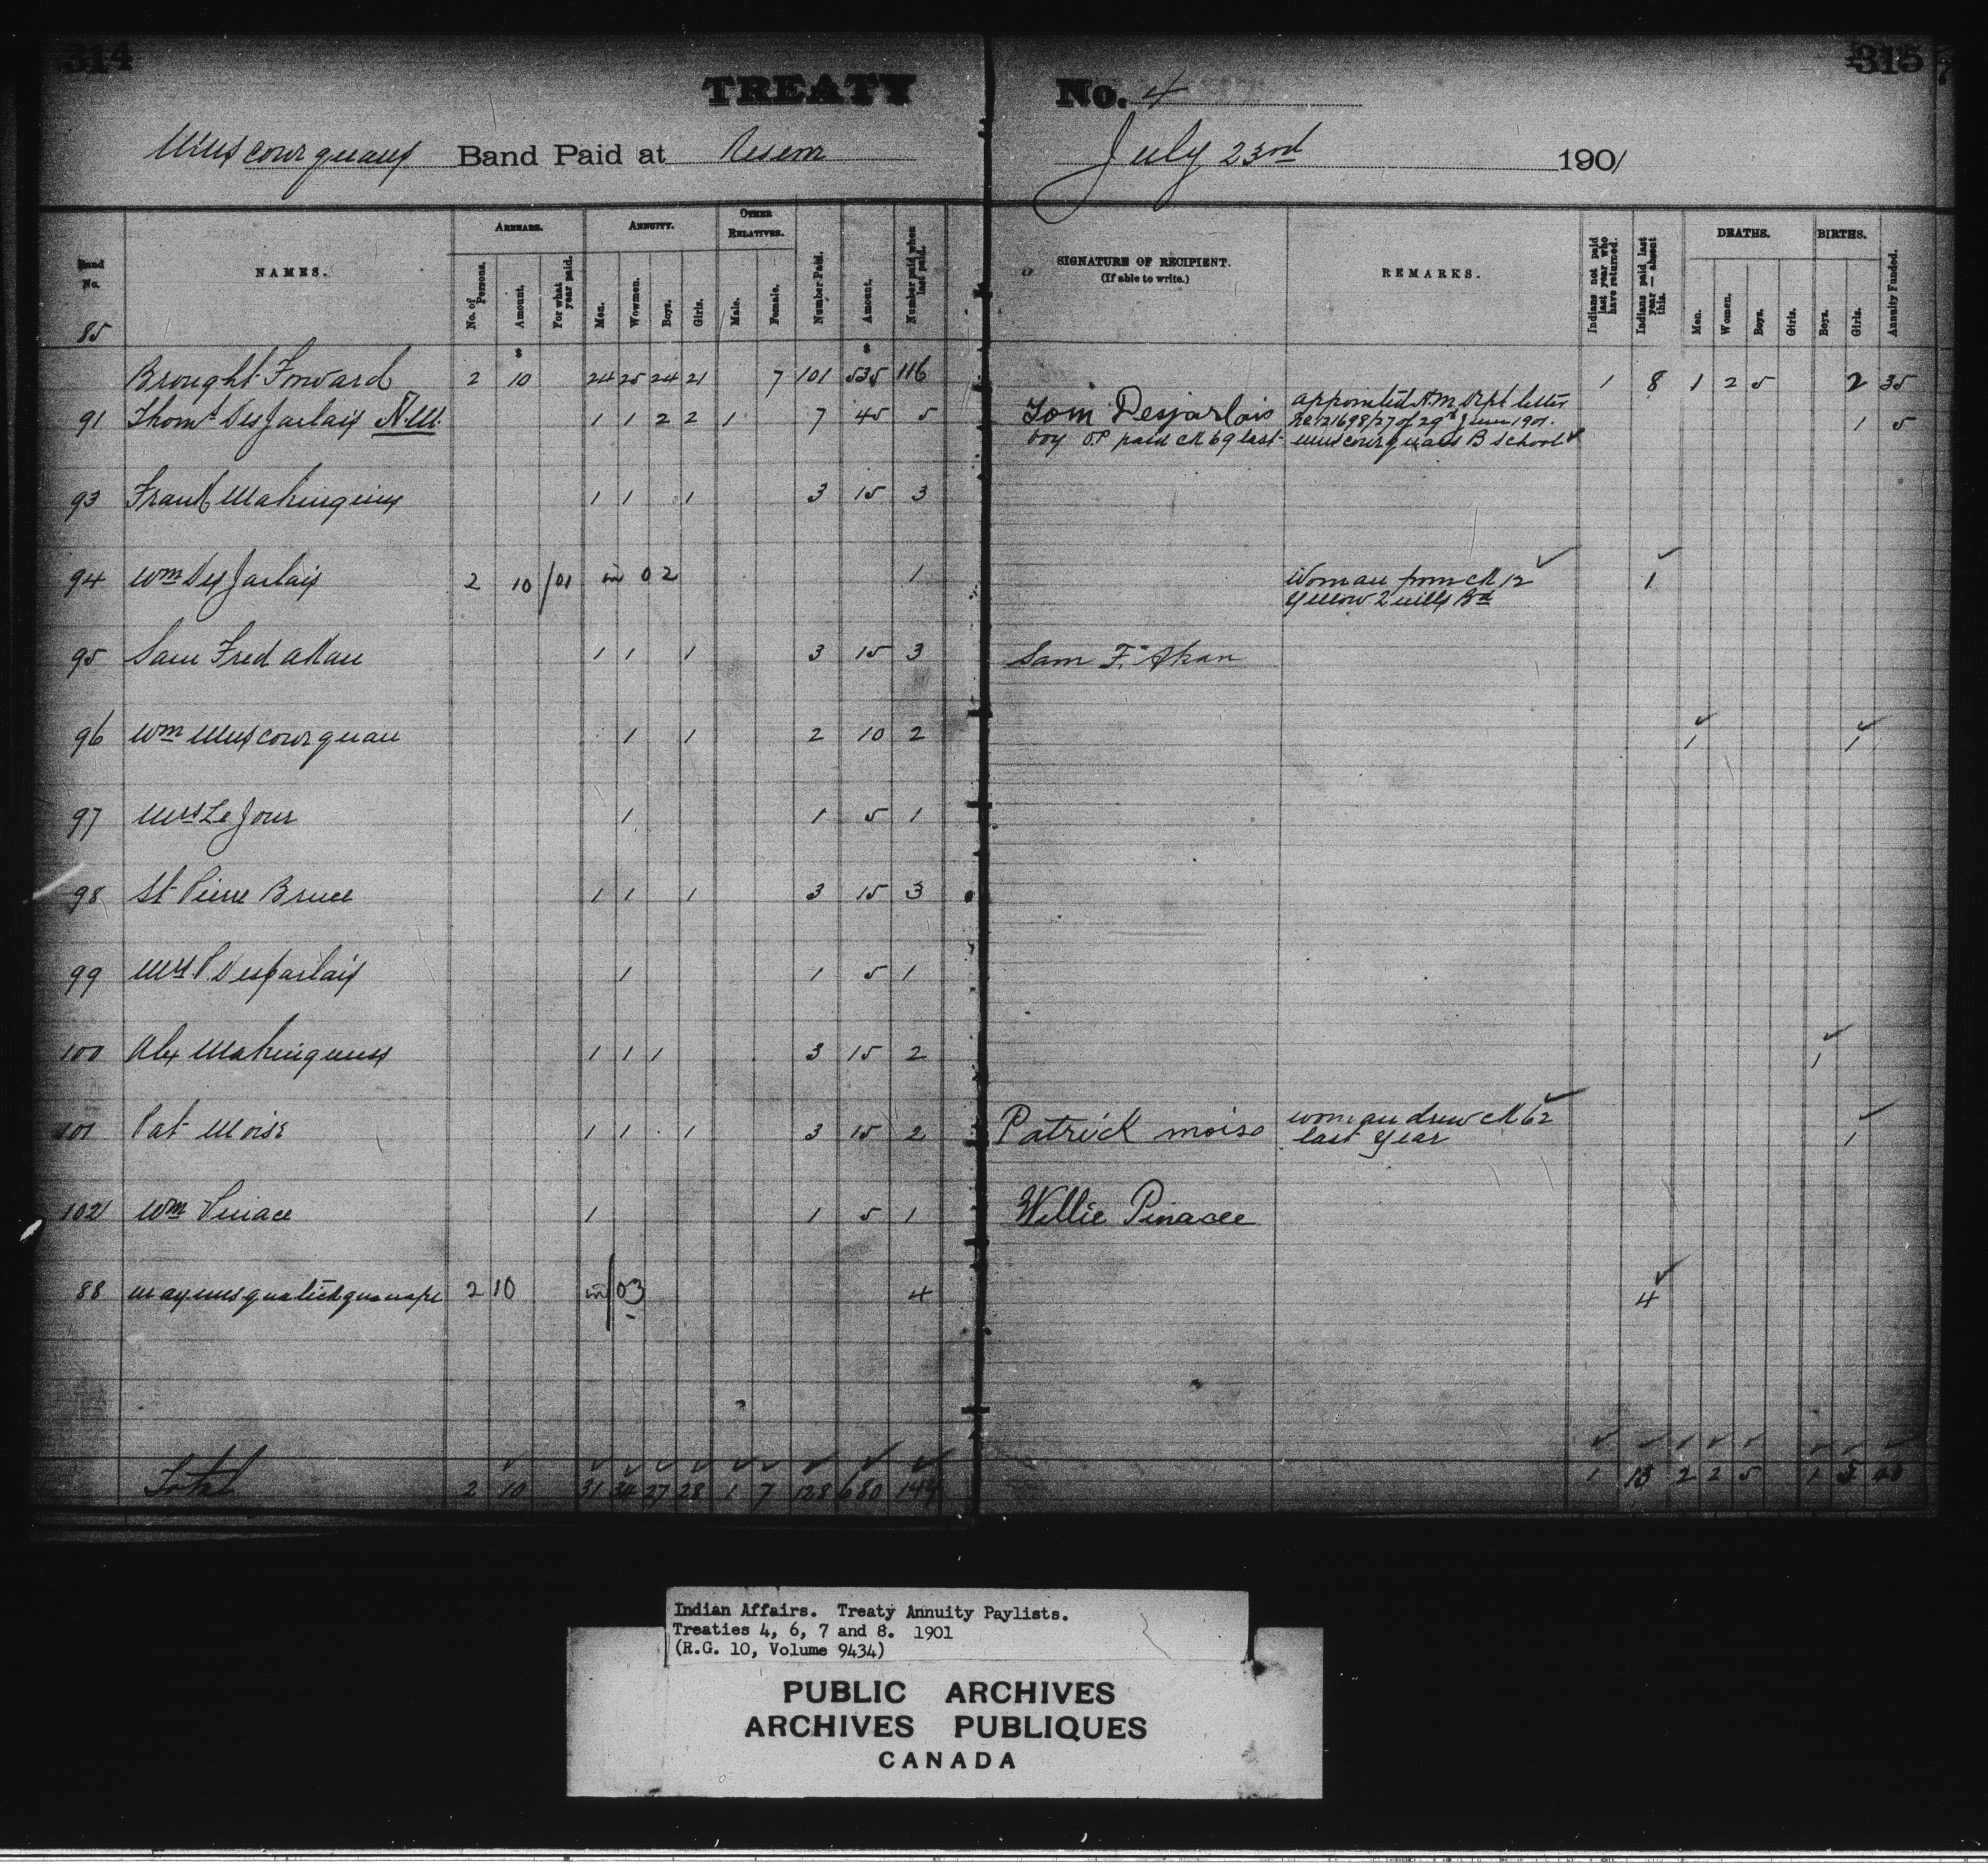 314
315
TREATY No. 4
Muscowequans Band Paid at Reserve July 23rd 1901
Band No.
NAMES.
ARREARS.
No. of Persons.
Amount.
For what year paid.
ANNUITY.
Men.
Wowmen.
Boys.
Girls.
OTHER RELATIVES.
Male.
Female.
Number Paid.
Amount.
Number paid when last paid.
SIGNATURE OF RECIPIENT.
(If able to write.)
REMARKS.
Indians not paid last year who have returned.
Indians paid last year — absent this.
DEATHS.
Men.
Women.
Boys.
Girls.
BIRTHS.
Boys.
Girls.
Annuity Funded.
85
Brought Forward 2 10 24 25 24 21 7 101 535 116 1 8 1 2 5 2 35
91 Thomas DesJarlais 1 1 2 2 1 7 45 5 Tom Desjarlais appointed H.M. Dept letter 1 5
No 121698/27 of 29th June 1901.
boy OP paid ck 69 last Muscowequans B School
93 Frank 1 1 1 3 15 3
94 Wm DesJarlais 2 10 /01 in 02 1 Woman from ck 12 1
Yellow Quills Bd
95 Sam Fred Akan 1 1 1 3 15 3 Sam F. Akan
96 Wm Muscowequan 1 1 2 10 2 1 1
97 Mrs Le Jour 1 1 5 1
98 St Pierre Bruce 1 1 1 3 15 3
99 Mrs P. Desjarlais 1 1 5 1
100 Alex 1 1 1 3 15 2 1
101 Pat Moise 1 1 1 3 15 2 Patrick moiso woman drew ck 62 1
last year
102 Wm Pinace 1 1 5 1 Willie Pinacee
88 2 10 in/03 4 4
Total 2 10 31 34 27 28 1 7 128 680 144 1 13 2 2 5 1 5 40
Indian Affairs. Treaty Annuity Paylists.
Treaties 4, 6, 7 and 8. 1901
(R.G. 10, Volume 9434)
PUBLIC ARCHIVES
ARCHIVES PUBLIQUES
CANADA